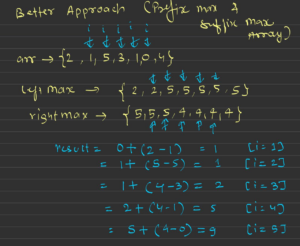 Better Approach (Prefix max &
Suffix max
Array)
i i i i i
arr → {2, 1, 5, 3, 1, 0, 4}
left max → { 2, 2, 5, 5, 5, 5, 5}
right max → { 5, 5, 5, 4, 4, 4, 4}
result = 0 + (2 - 1) = 1 [i = 1]
= 1 + (5 - 5) = 1 [i = 2]
= 1 + (4 - 3) = 2 [i = 3]
= 2 + (4 - 1) = 5 [i = 4]
= 5 + (4 - 0) = 9 [i = 5]